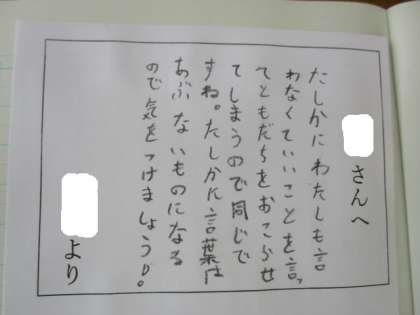 さんへ
たしかにわたしも言
わなくていいことを言っ
てともだちをおこらせ
てしまうので同じで
すね。たしかに言葉は
あぶないものになる
ので気をつけましょうね。
より